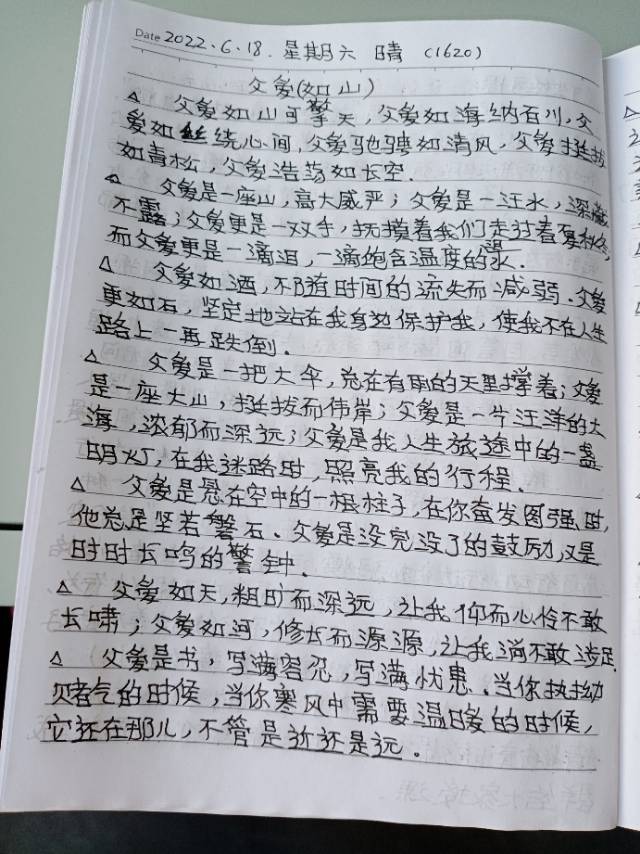 Date 2022.6.18. 星期六 晴 (1620)
父爱(如山)
△ 父爱如山可擎天,父爱如海纳百川,父
爱如丝绕心间,父爱驰骋如清风,父爱挺拔
如青松,父爱浩荡如长空.
△ 父爱是一座山,高大威严;父爱是一汪水,深藏
不露;父爱更是一双手,抚摸着我们走过春夏秋冬;
而父爱更是一滴泪,一滴饱含温度的泪水.
△ 父爱如酒,不随时间的流失而减弱.父爱
更如石,坚定地站在我身边保护我,使我不在人生
路上一再跌倒.
△ 父爱是一把大伞,总在有雨的天里撑着;父爱
是一座大山,挺拔而伟岸;父爱是一片汪洋的大
海,浓郁而深远;父爱是我人生旅途中的一盏
明灯,在我迷路时,照亮我的行程.
△ 父爱是悬在空中的一根柱子,在你奋发图强时,
他总是坚若磐石.父爱是没完没了的鼓励,又是
时时长鸣的警钟.
△ 父爱如天,粗旷而深远,让我仰而心怜不敢
长啸;父爱如河,修长而源源,让我淌不敢涉足.
△ 父爱是书,写满容忍,写满忧患.当你执拗
赌气的时候,当你寒风中需要温暖的时候,
它还在那儿,不管是近还是远.